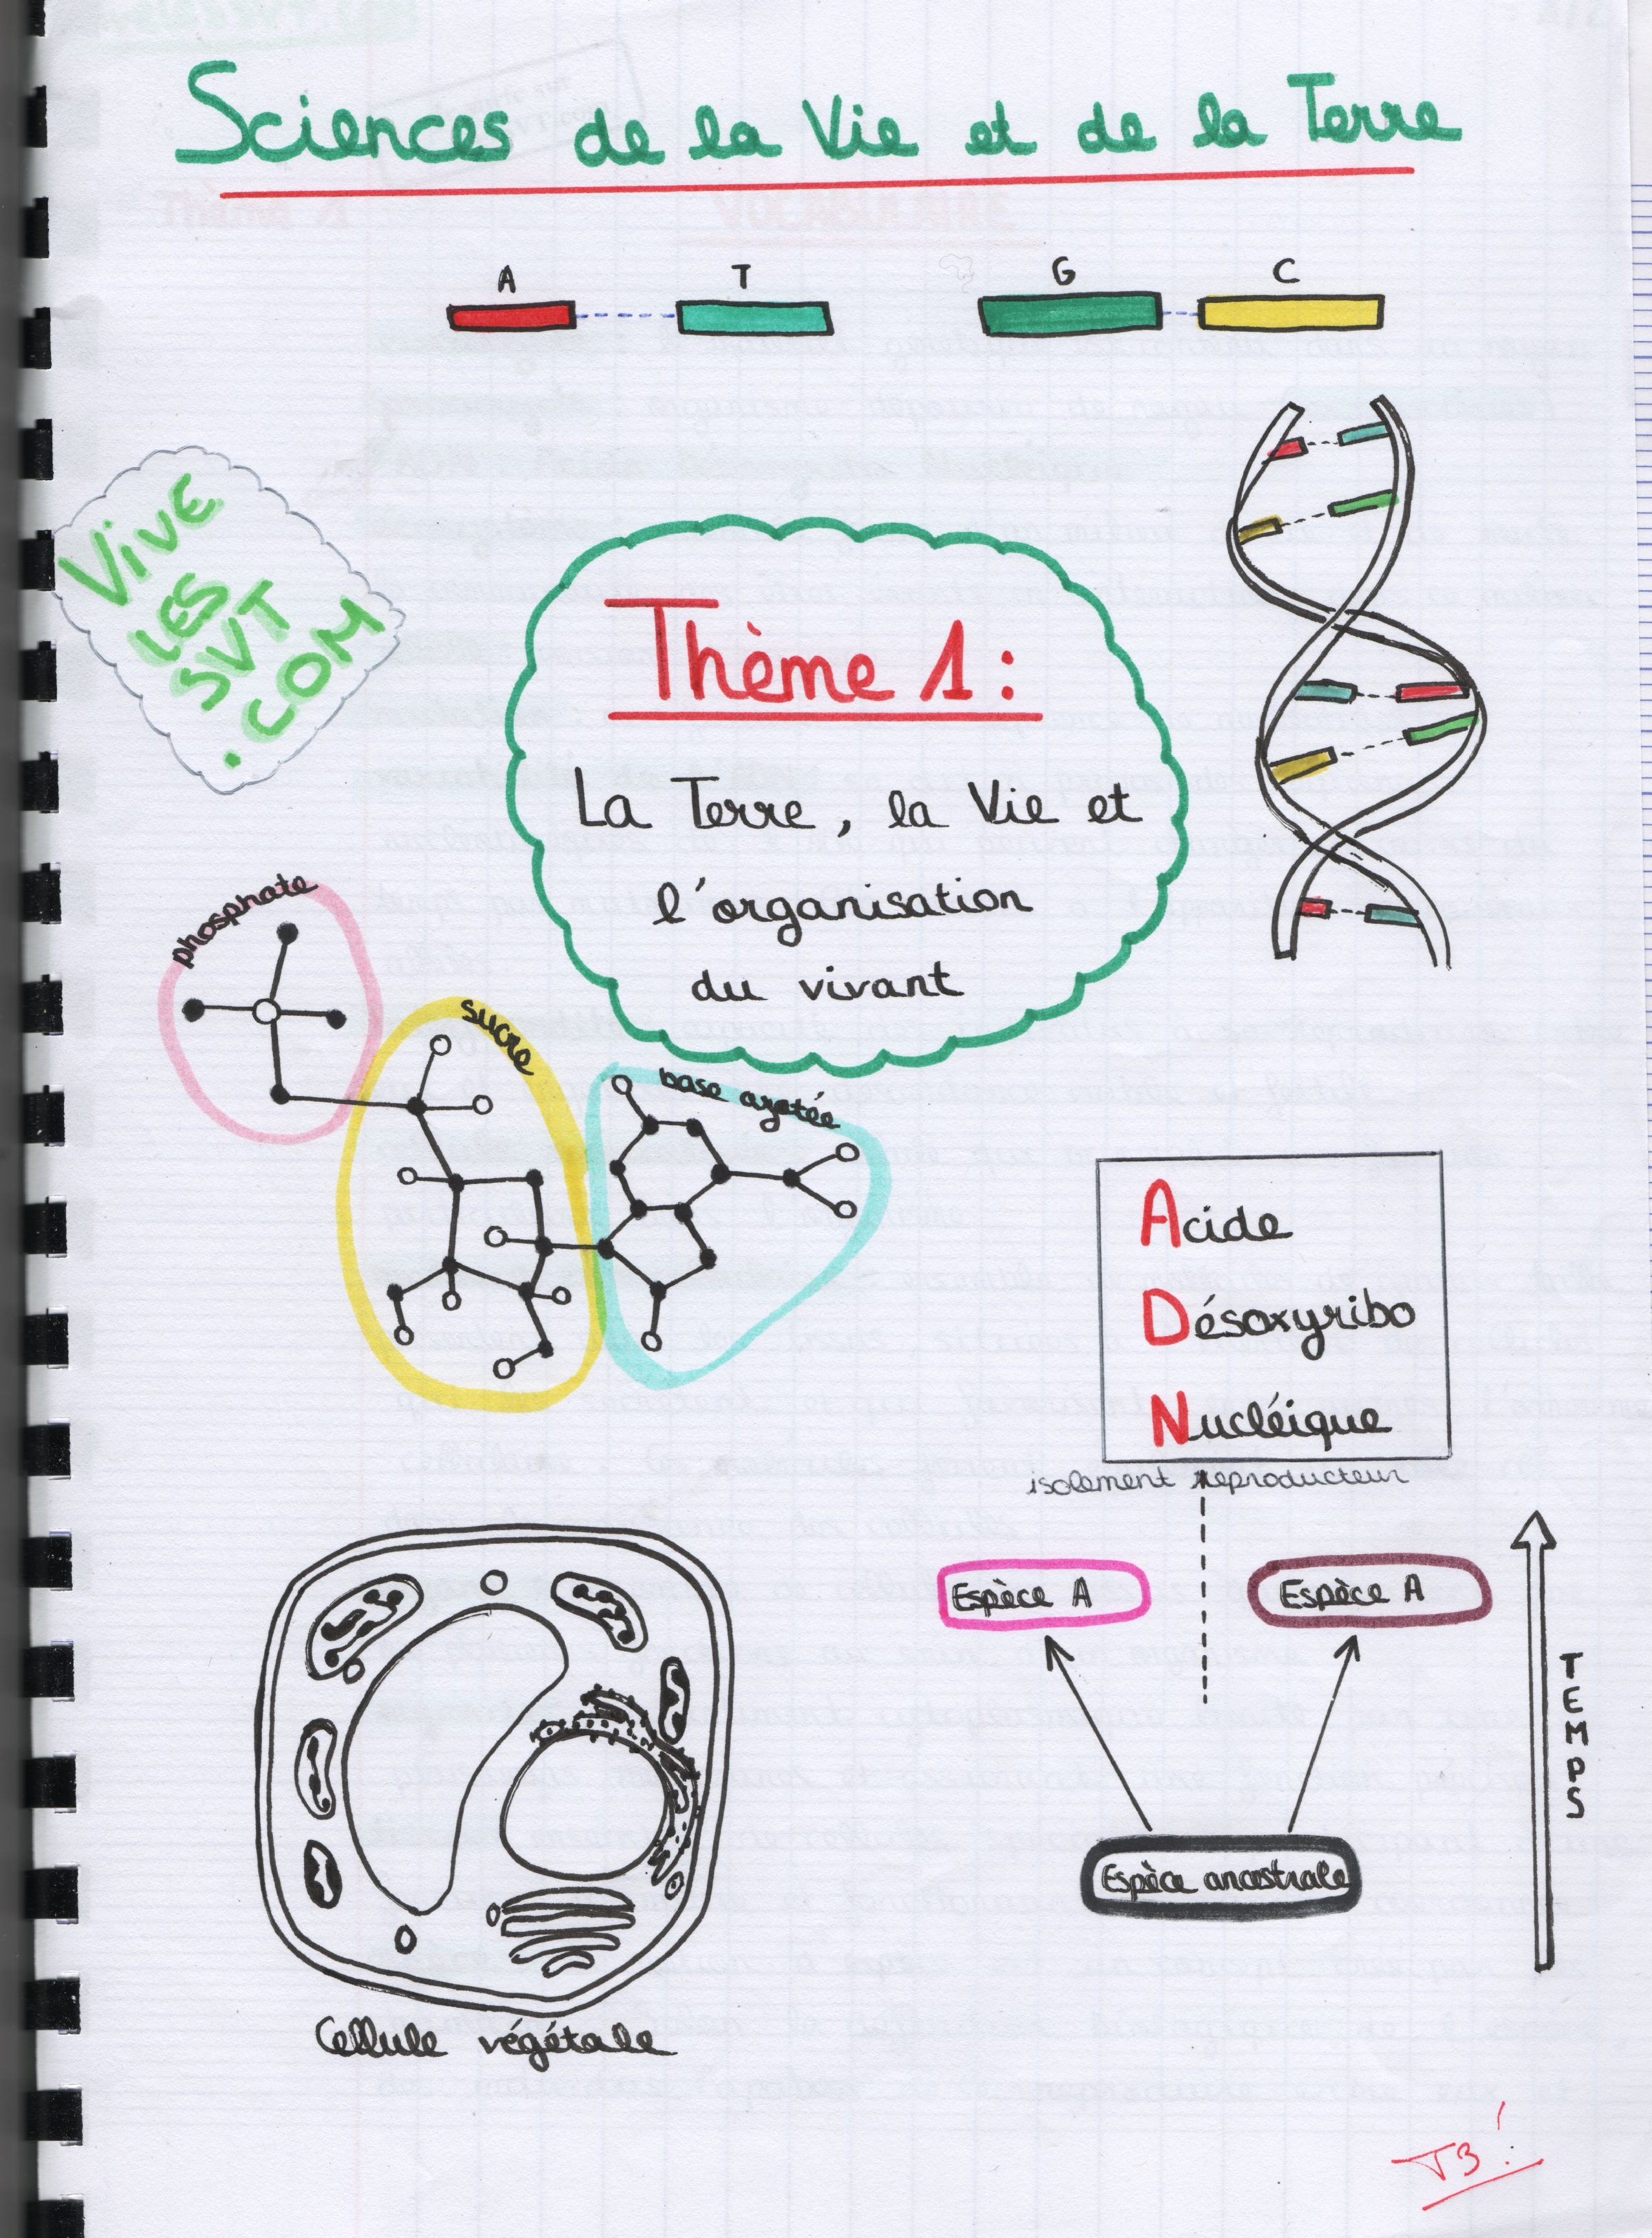 Sciences de la Vie et de la Terre
A T G C
Vive
LES
SVT
.COM
Thème 1 :
La Terre, la Vie et
l'organisation
du vivant
phosphate
sucre
base azotée
Acide
Désoxyribo
Nucléique
isolement reproducteur
Espèce A
Espèce A
TEMPS
Espèce ancestrale
Cellule végétale
TB !